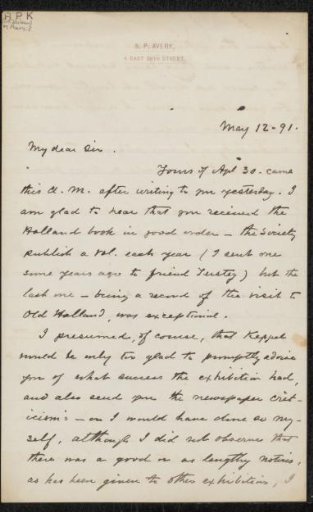 A P K
S. P. AVERY,
4 EAST 38TH STREET.
May 12-91.
My dear Sir.
Yours of Apl 30. came
this A. M. after writing to you yesterday. I
am glad to hear that you received the
Holland book in good order - the Society
publish a vol. each year (I sent one
some years ago to friend ) but the
last one - being a record of the visit to
Old Holland, was exceptional.
I presumed, of course, that Keppel
would be only too glad to promptly advise
you of what success the exhibition had,
and also send you the newspaper crit-
icisms - or I would have done so my-
self, although I did not observe that
there was a good or as lengthy notices,
as has been given to other exhibitions, I